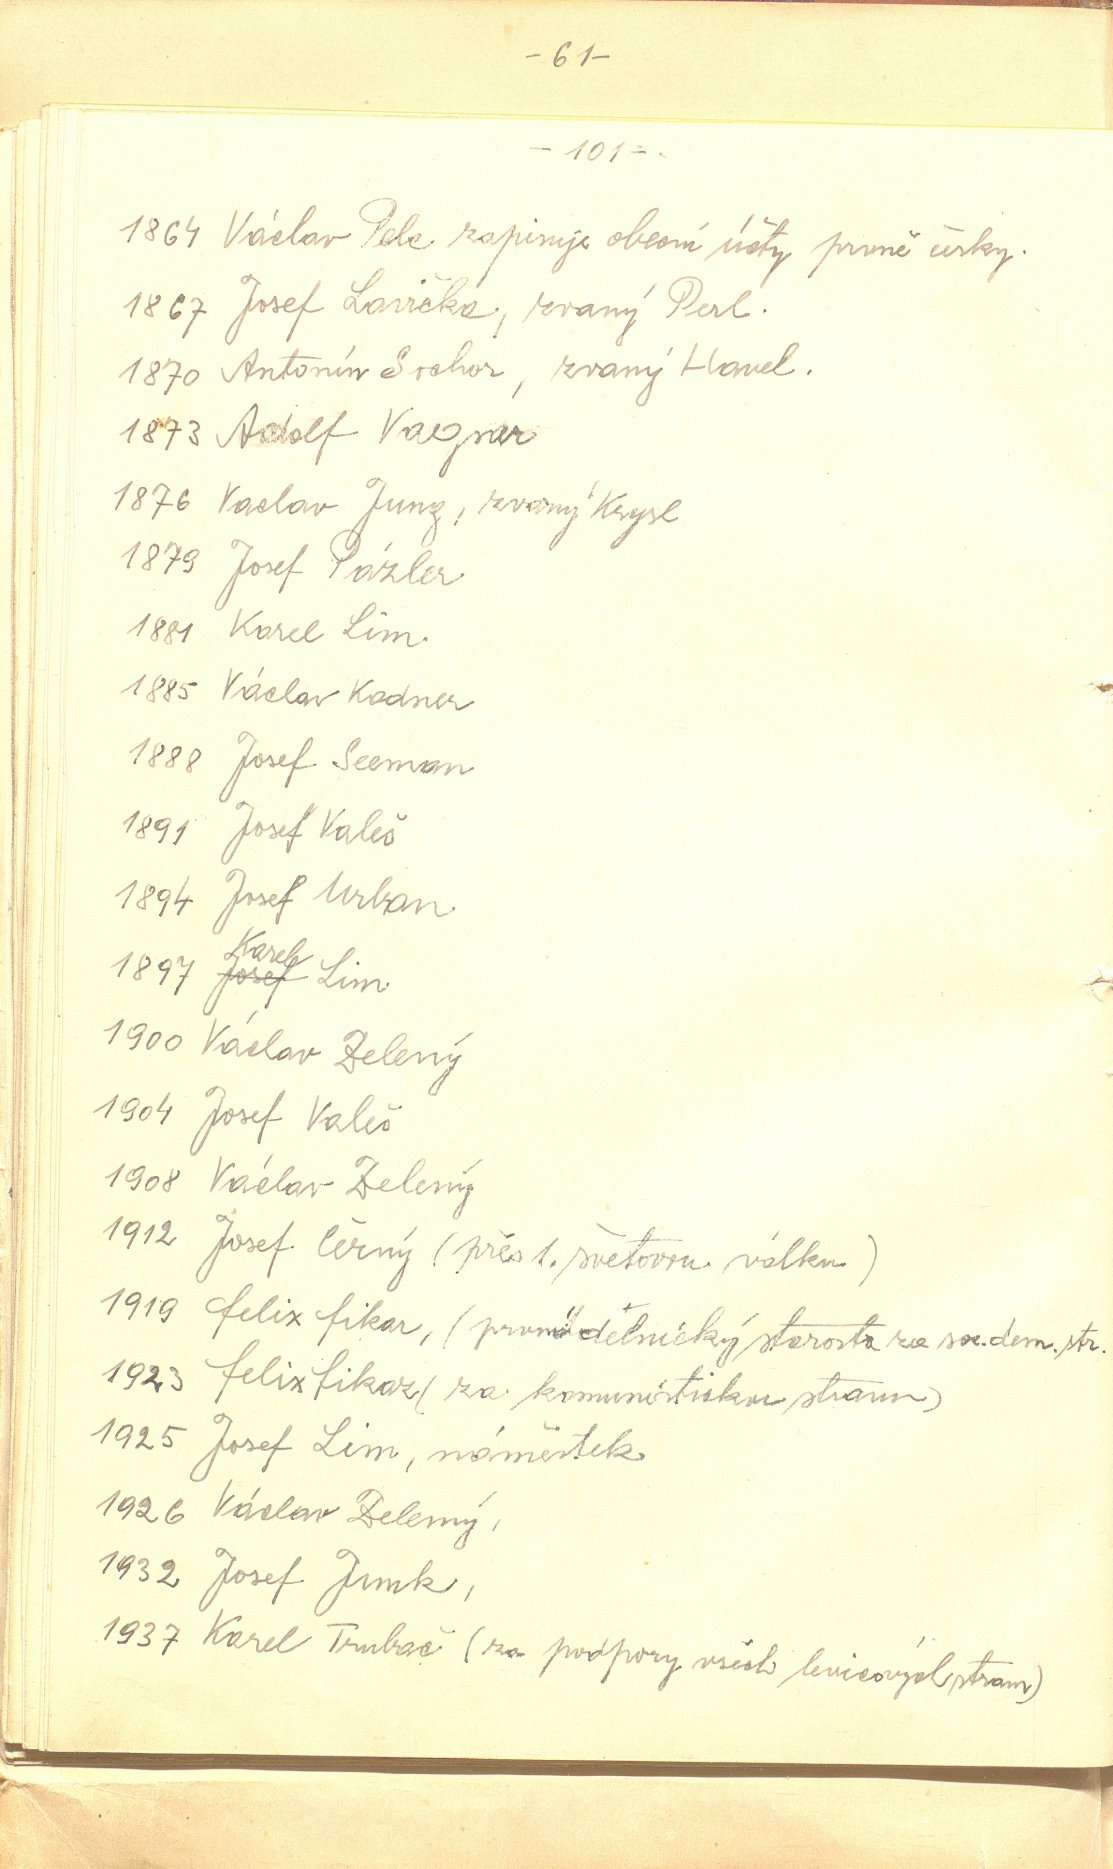 -61-
-101-
1864 Václav Pelc zapisuje obecní účty prvně česky.
1867 Josef Lavička, zvaný Perl.
1870 Antonín Sochor, zvaný Havel.
1873 Adolf Vagner
1876 Vaclav Jung, zvaný Krysl
1879 Josef Pázler
1881 Karel Lim
1885 Václav Kadner
1888 Josef Seeman
1891 Josef Valeš
1894 Josef Urban
Karel
1897 Josef Lim
1900 Václav Zelený
1904 Josef Valeš
1908 Václav Zelený
1912 Josef Černý (přes 1. světovou válku)
1919 Felix Fikar, (první dělnický starosta za soc. dem. str.
1923 Felix Fikar (za komunistickou stranu)
1925 Josef Lim, náměstek
1926 Václav Zelený,
1932 Josef Junk,
1937 Karel Trubač (za podpory všech levicových stran)